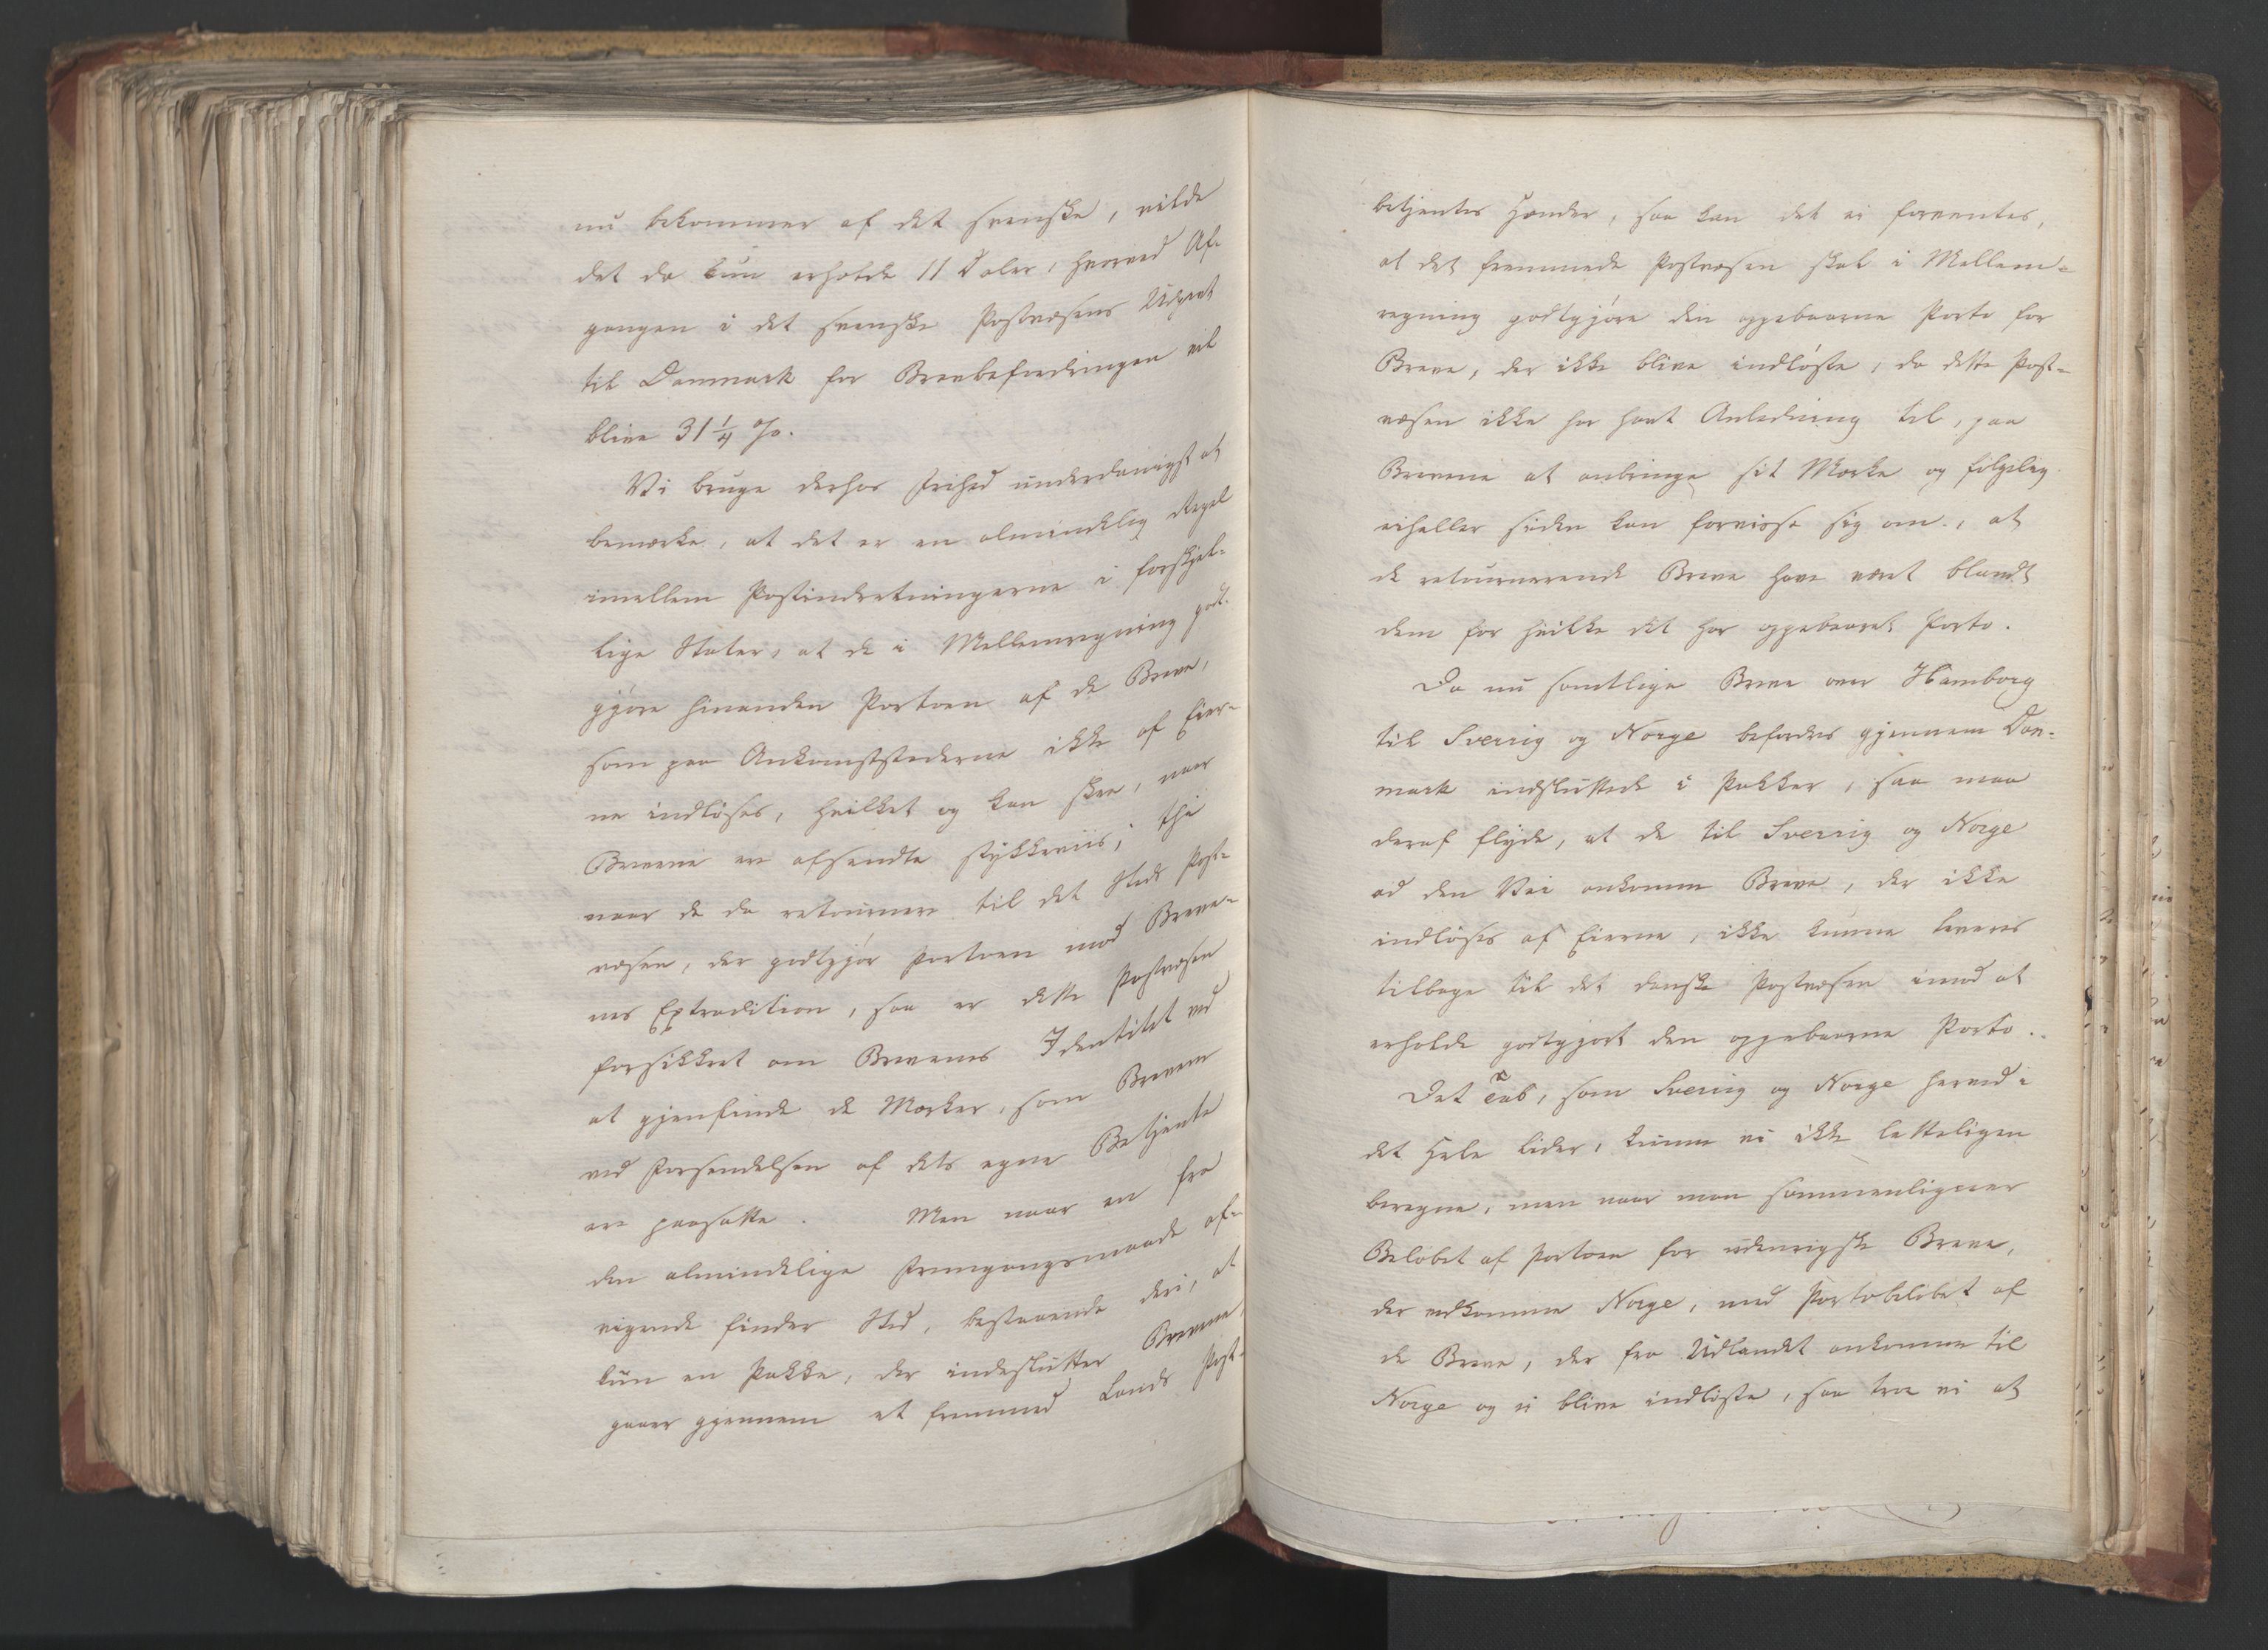 nu bekommer af det svenske, vilde
det da kun erholde 11 Daler, hvorved Af-
gangen i det svenske Postvæsens Udgivt
til Danmark for Brevbefordringen vil
blive 31 1/4 %.
Vi bruge derhos Frihed underdanigst at
bemærke, at det er en almindelig Regel
imellem Postindretningerne i forskjel-
lige Stater, at de i Mellemregning godt-
gjøre hinanden Portoen af de Breve,
som paa Ankomststederne ikke af Eier-
ne indløses, hvilket og kan skee, naar
Brevene ere afsendte stykkeviis; thi
naar de da retournere til det Steds Post-
væsen, der godtgjør Portoen mod Breve-
nes Extradition, saa er dette Postvæsen
forsikkret om Brevenes Identitet ved
at gjenfinde de Mærker, som Brevene
ved Forsendelsen af dets egne Betjente
ere paasatte. Men naar en fra
den almindelige Fremgangsmaade af-
vigende finder Sted, bestaaende deri, at
kun en Pakke, der indeslutter Brevene,
gaaer gjennem et fremmed Lands Post-
betjentes Hænder, saa kan det ei forventes,
at det fremmede Postvæsen skal i Mellem-
regning godtgjøre den oppebaarne Porto for
Breve, der ikke blive indløste, da dette Post-
væsen ikke har havt Anledning til, paa
Brevene at anbringe sit Mærke og følgelig
eiheller siden kan forvisse sig om, at
de retournerende Breve have været blandt
dem for hvilke det har oppebaaret Porto.
Da nu samtlige Breve over Hamborg
til Sverrig og Norge befordres gjennem Dan-
mark indsluttede i Pakker, saa maa
deraf flyde, at de til Sverrig og Norge
ad den Vei ankomne Breve, der ikke
indløses af Eierne, ikke kunne leveres
tilbage til det danske Postvæsen imod at
erholde godtgjort den oppebaarne Porto.
Det Tab, som Sverrig og Norge herved i
det Hele lider, kunne vi ikke letteligen
beregne, men naar man sammenligner
Beløbet af Portoen for udenrigske Breve,
der vedkomme Norge, med Portobeløbet af
de Breve, der fra Udlandet ankomme til
Norge og ei blive indløste, saa troe vi at